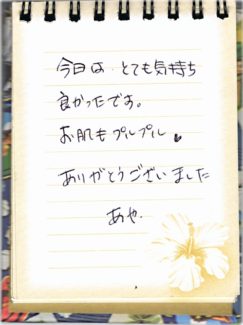 今日は とても気持ち
良かったです。
お肌もプルプル
ありがとうございました
あや.